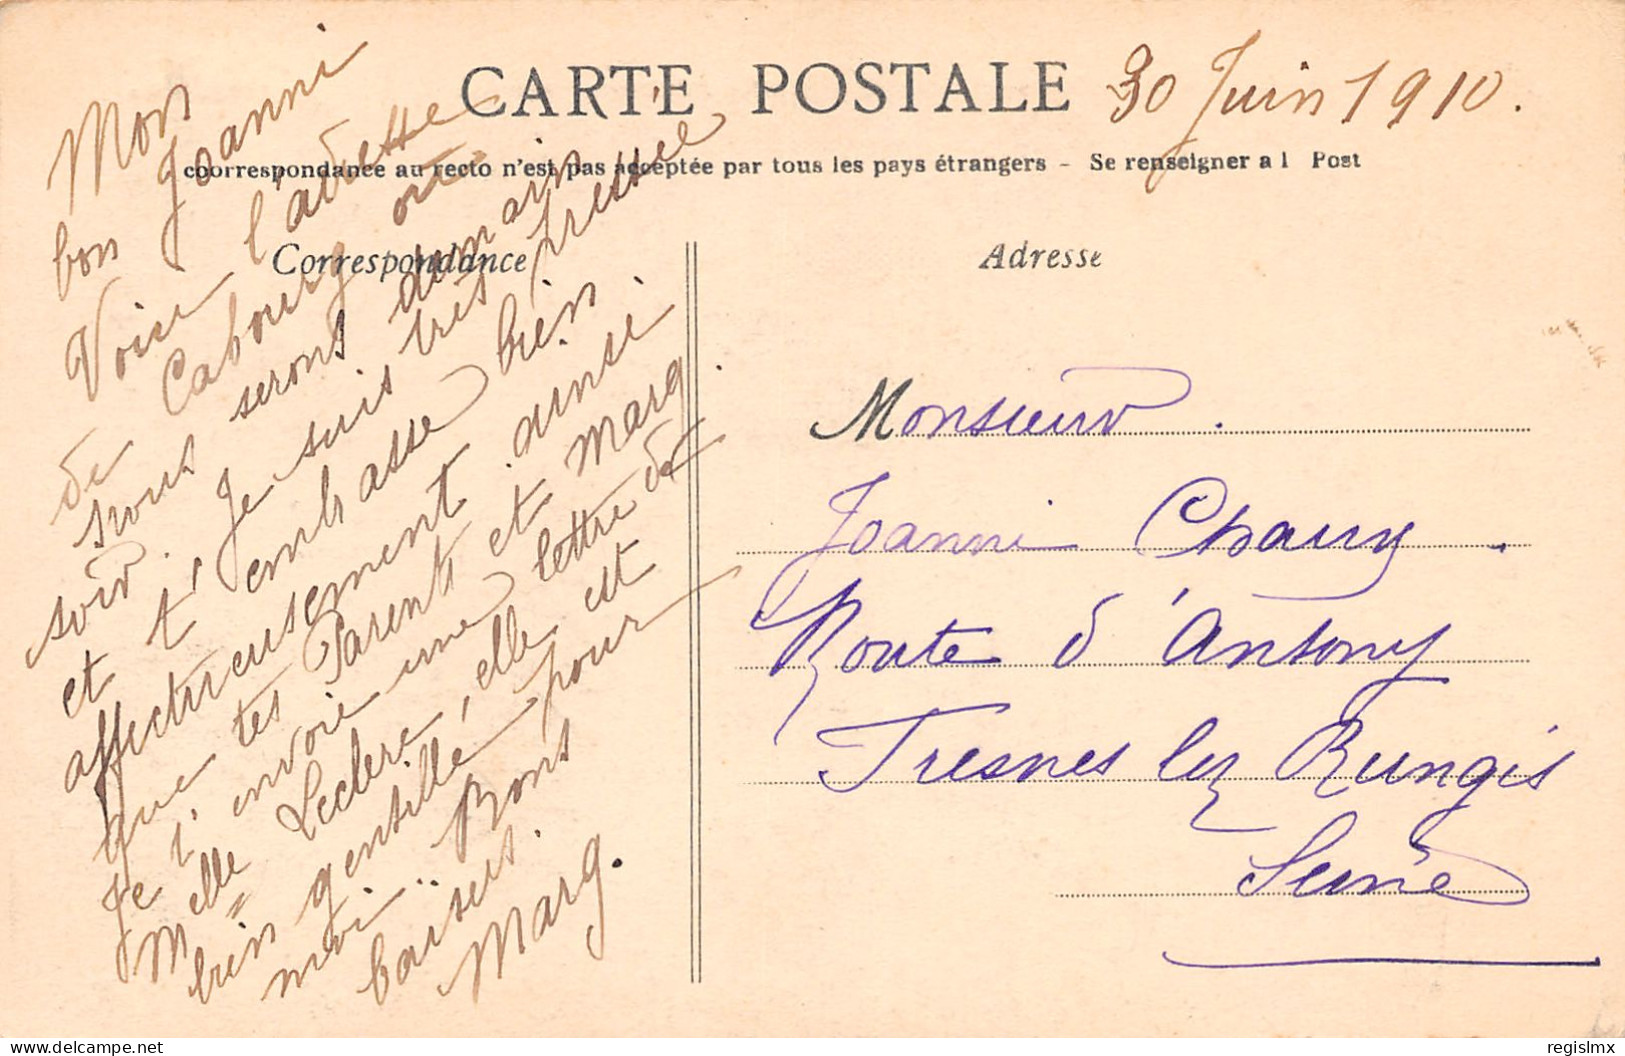 CARTE POSTALE
30 Juin 1910.
coorrespondance au recto n'est pas acceptée par tous les pays étrangers - Se renseigner a l Post
Correspondance
Adresse
Mon
bon Joanni
Voici l'adresse
de Cabourg où
nous serons demain
soir. Je suis très pressée
et t'embrasse bien
affectueusement ainsi
que tes Parents et Marg.
Je t'envoie une lettre de
Melle Leclerc, elle est
bien gentille pour
moi.. Bons
baisers.
Marg.
Monsieur.
Joanni Chauy.
Route d'Antony
Fresnes lez Rungis
Seine
regislmx
delcampe.net